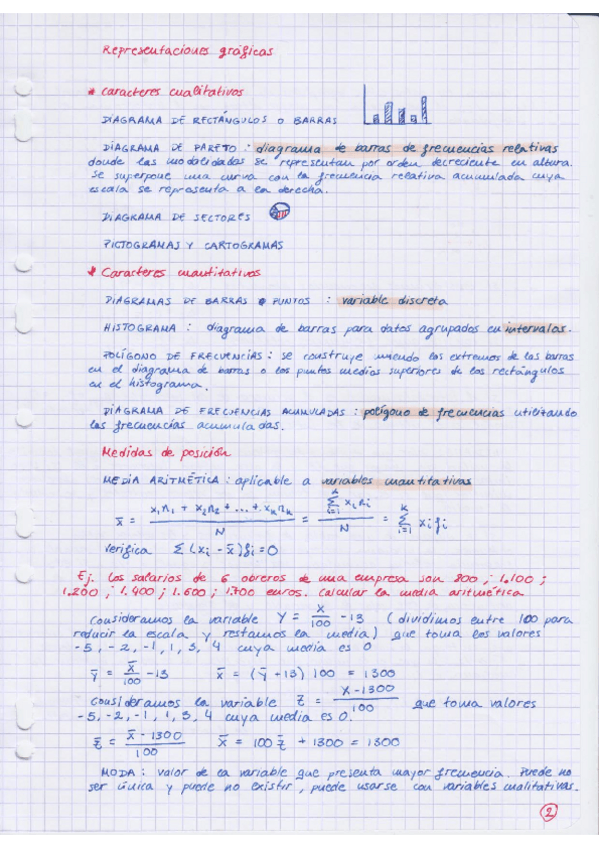 Representaciones gráficas
* Caracteres cualitativos
DIAGRAMA DE RECTÁNGULOS O BARRAS
DIAGRAMA DE PARETO : diagrama de barras de frecuencias relativas
donde las modalidades se representan por orden decreciente en altura.
Se superpone una curva con la frecuencia relativa acumulada cuya
escala se representa a la derecha.
DIAGRAMA DE SECTORES
PICTOGRAMAS Y CARTOGRAMAS
* Caracteres cuantitativos
DIAGRAMAS DE BARRAS O PUNTOS : variable discreta
HISTOGRAMA : diagrama de barras para datos agrupados en intervalos.
POLÍGONO DE FRECUENCIAS : se construye uniendo los extremos de las barras
en el diagrama de barras o los puntos medios superiores de los rectángulos
en el histograma.
DIAGRAMA DE FRECUENCIAS ACUMULADAS : polígono de frecuencias utilizando
las frecuencias acumuladas.
Medidas de posición
MEDIA ARITMÉTICA : aplicable a variables cuantitativas
x̄ = (x₁n₁ + x₂n₂ + ... + xₖnₖ) / N = (Σᵢ₌₁ᵏ xᵢnᵢ) / N = Σᵢ₌₁ᵏ xᵢfᵢ
Verifica Σ(xᵢ - x̄)fᵢ = 0
Ej. Los salarios de 6 obreros de una empresa son 800 ; 1.100 ;
1.200 ; 1.400 ; 1.600 ; 1.700 euros. Calcular la media aritmética
Consideramos la variable Y = X/100 - 13 (dividimos entre 100 para
reducir la escala y restamos la media) que toma los valores
-5, -2, -1, 1, 3, 4 cuya media es 0
ȳ = x̄/100 - 13 x̄ = (ȳ + 13) 100 = 1300
Consideramos la variable Z = (X - 1300)/100 que toma valores
-5, -2, -1, 1, 3, 4 cuya media es 0.
z̄ = (x̄ - 1300)/100 x̄ = 100 z̄ + 1300 = 1300
MODA : valor de la variable que presenta mayor frecuencia. Puede no
ser única y puede no existir, puede usarse con variables cualitativas.
2